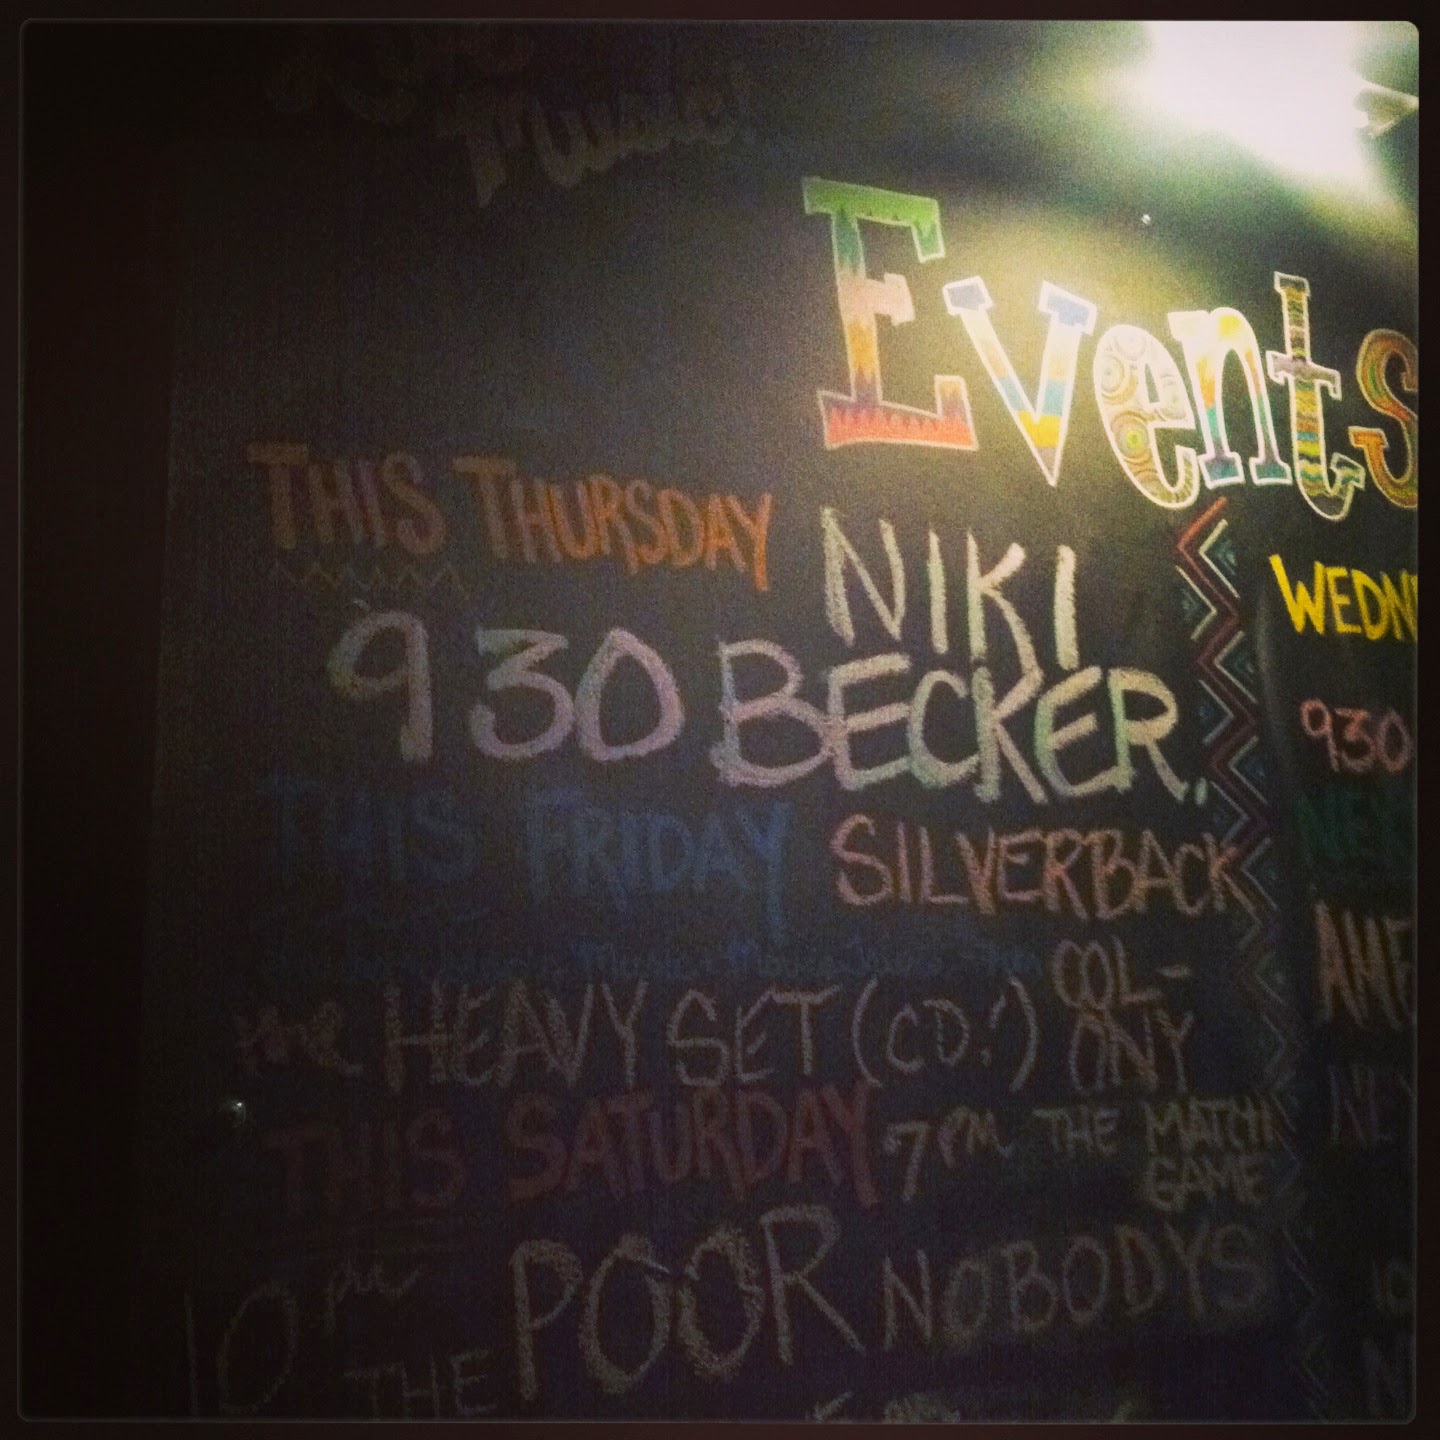 Music!
Events
THIS THURSDAY NIKI
930 BECKER,
THIS FRIDAY SILVERBACK
COL-
the HEAVY SET (CD!) ONY
THIS SATURDAY 7PM THE MATCH
GAME
10 pm THE POOR NOBODYS
WEDN
930
NEW
AME